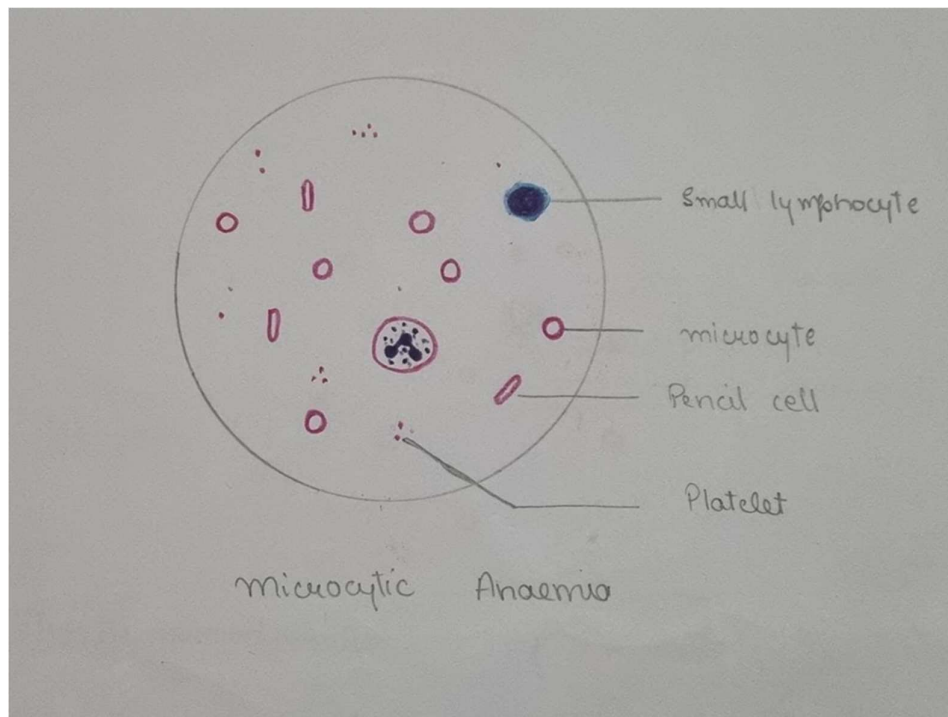 Small lymphocyte
microcyte
Pencil cell
Platelet
Microcytic Anaemia